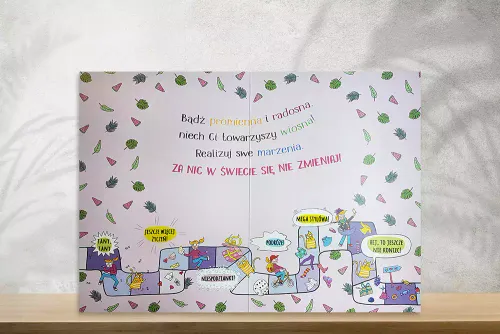 Bądź promienna i radosna,
niech Ci towarzyszy wiosna!
Realizuj swe marzenia,
ZA NIC W ŚWIECIE SIĘ NIE ZMIENIAJ!
FANT,
FANT
JESZCZE WIĘCEJ
ŻYCZEŃ!
NIESPODZIANKI!
PODRÓŻE!
MEGA STYLÓWA!
HEJ, TO JESZCZE
NIE KONIEC!